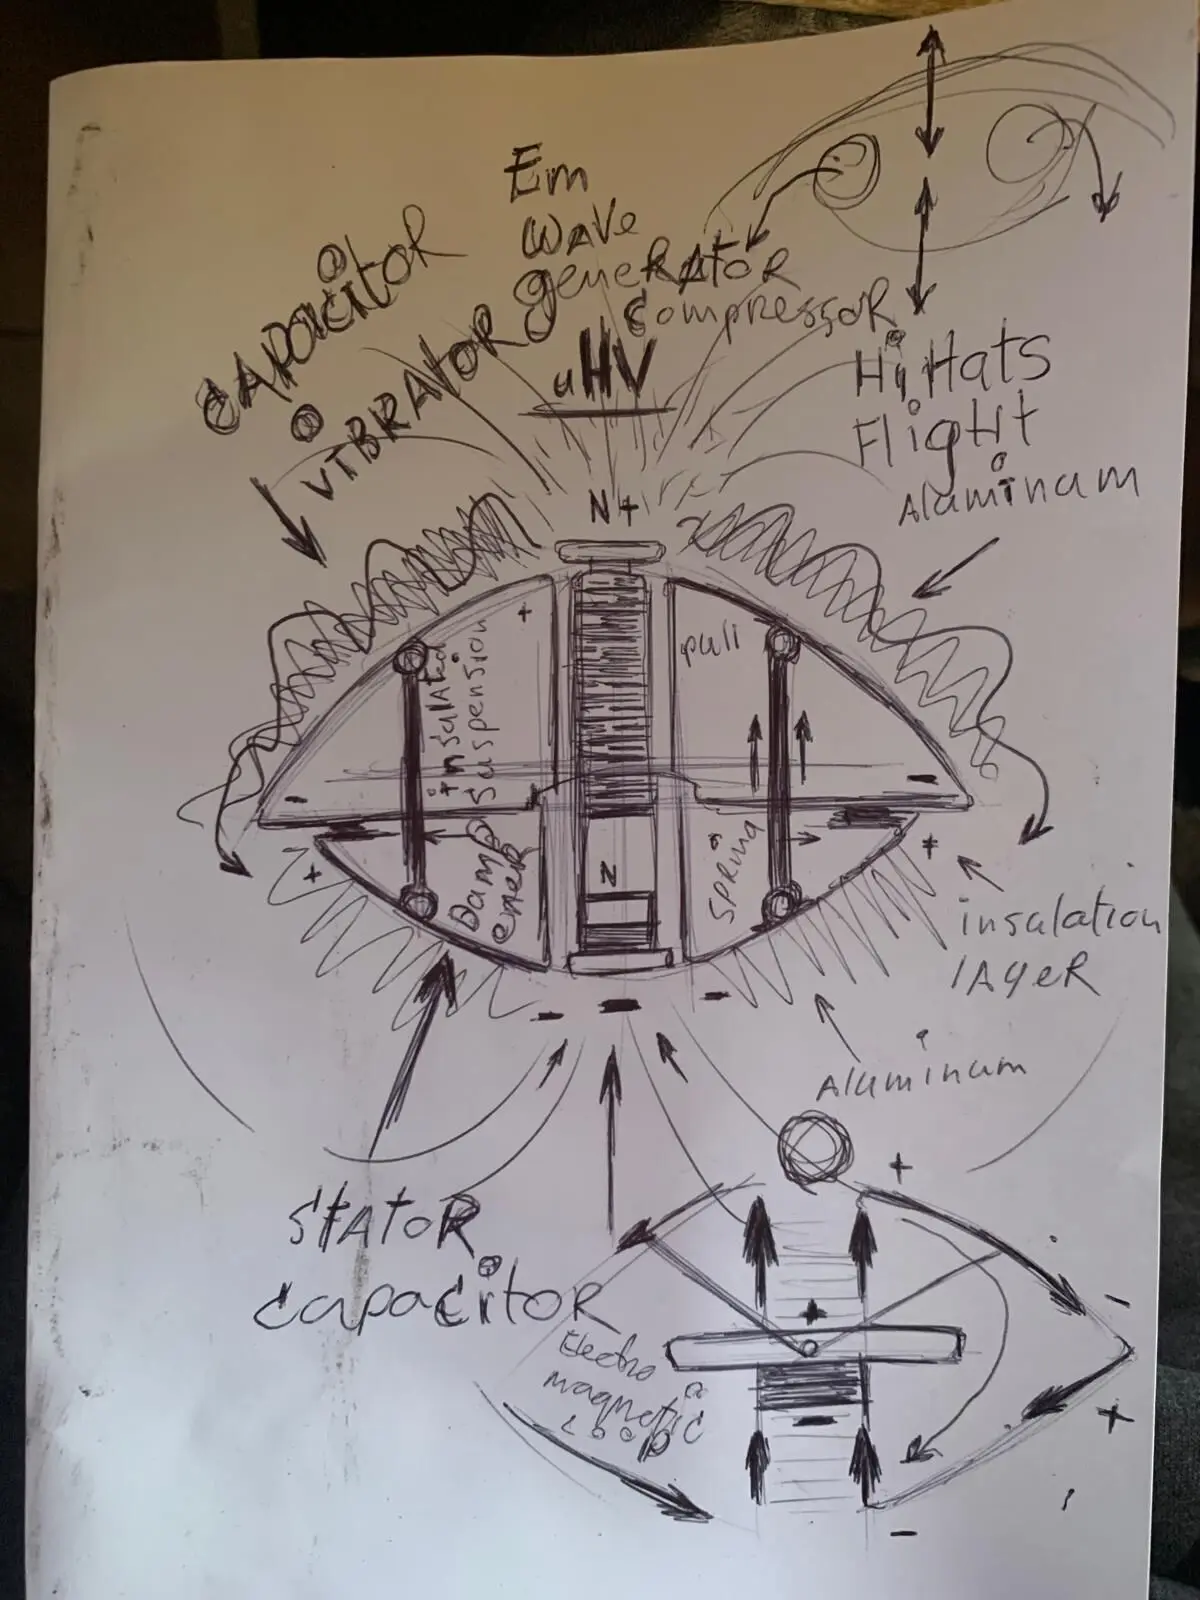 Em
wave
generator
compressor
CAPACitOR
VIBRAtOR
uHV
Hi Hats
Flight
Aluminum
N +
+
insulated
suspension
pull
-
-
Damp
ener
N
spring
+
+
insulation
lAyeR
-
-
-
Aluminum
StAtoR
capacitoR
+
-
+
Electro
magnetic
Loop
-
+
-